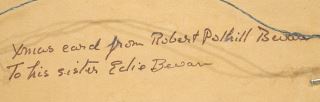 Xmas card from Robert Polhill Bevan
To his sister Edie Bevan